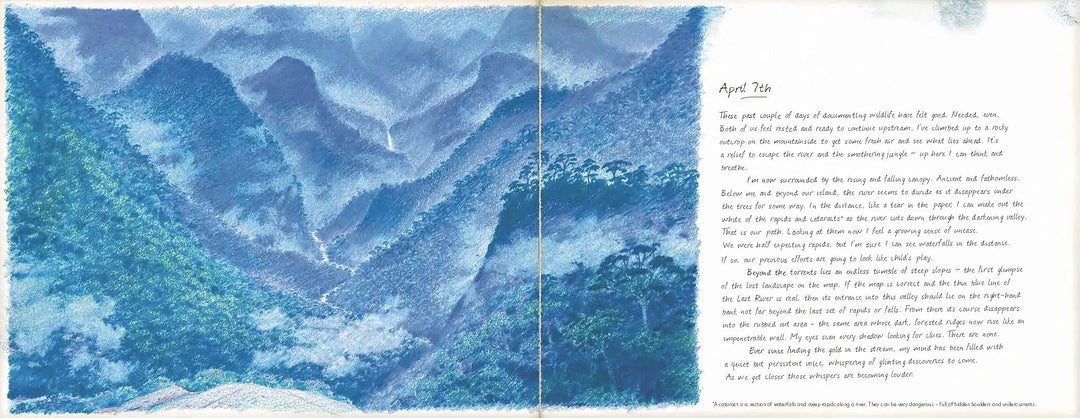 April 7th
These past couple of days of documenting wildlife have felt good. Needed, even.
Both of us feel rested and ready to continue upstream. I've climbed up to a rocky
outcrop on the mountainside to get some fresh air and see what lies ahead. It's
a relief to escape the river and the smothering jungle – up here I can think and
breathe.
I'm now surrounded by the rising and falling canopy. Ancient and fathomless.
Below me and beyond our island, the river seems to divide as it disappears under
the trees for some way. In the distance, like a tear in the paper, I can make out the
white of the rapids and cataracts* as the river cuts down through the darkening valley.
That is our path. Looking at them now I feel a growing sense of unease.
We were half expecting rapids, but I'm sure I can see waterfalls in the distance.
If so, our previous efforts are going to look like child's play.
Beyond the torrents lies an endless tumble of steep slopes – the first glimpse
of the lost landscape on the map. If the map is correct and the thin blue line of
the Last River is real, then its entrance into this valley should lie on the right-hand
bank not far beyond the last set of rapids or falls. From there its course disappears
into the rubbed out area – the same area whose dark, forested ridges now rise like an
impenetrable wall. My eyes scan every shadow looking for clues. There are none.
Ever since finding the gold in the stream, my mind has been filled with
a quiet but persistent voice, whispering of glinting discoveries to come.
As we get closer those whispers are becoming louder.
*A cataract is a section of waterfalls and steep rapids along a river. They can be very dangerous – full of hidden boulders and undercurrents.